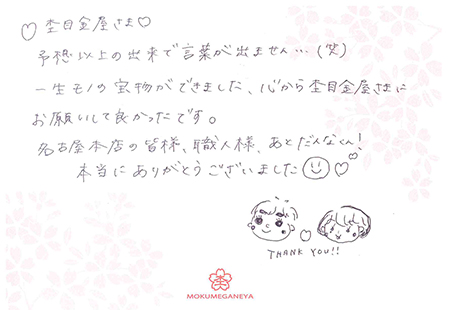 ♡杢目金屋さま♡
予想以上の出来で言葉が出ません…(笑)
一生モノの宝物ができました、心から杢目金屋さまに
お願いして良かったです。
名古屋本店の皆様、職人様、あとだんなくん!
本当にありがとうございました
THANK YOU!!
MOKUMEGANEYA